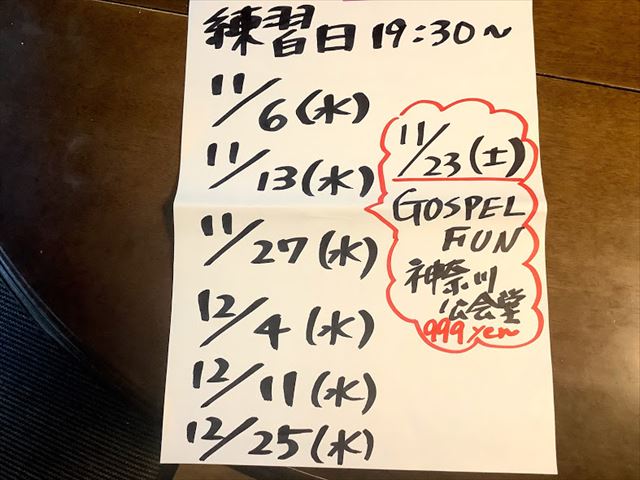 練習日 19:30~
11/6(水)
11/13(水)
11/27(水)
12/4(水)
12/11(水)
12/25(水)
11/23(土)
GOSPEL
FUN
神奈川
公会堂
999yen